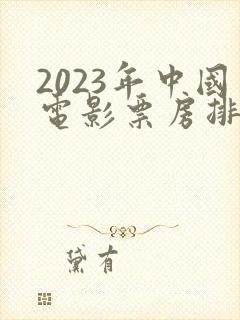 2023年中国
電影票房排
黛有